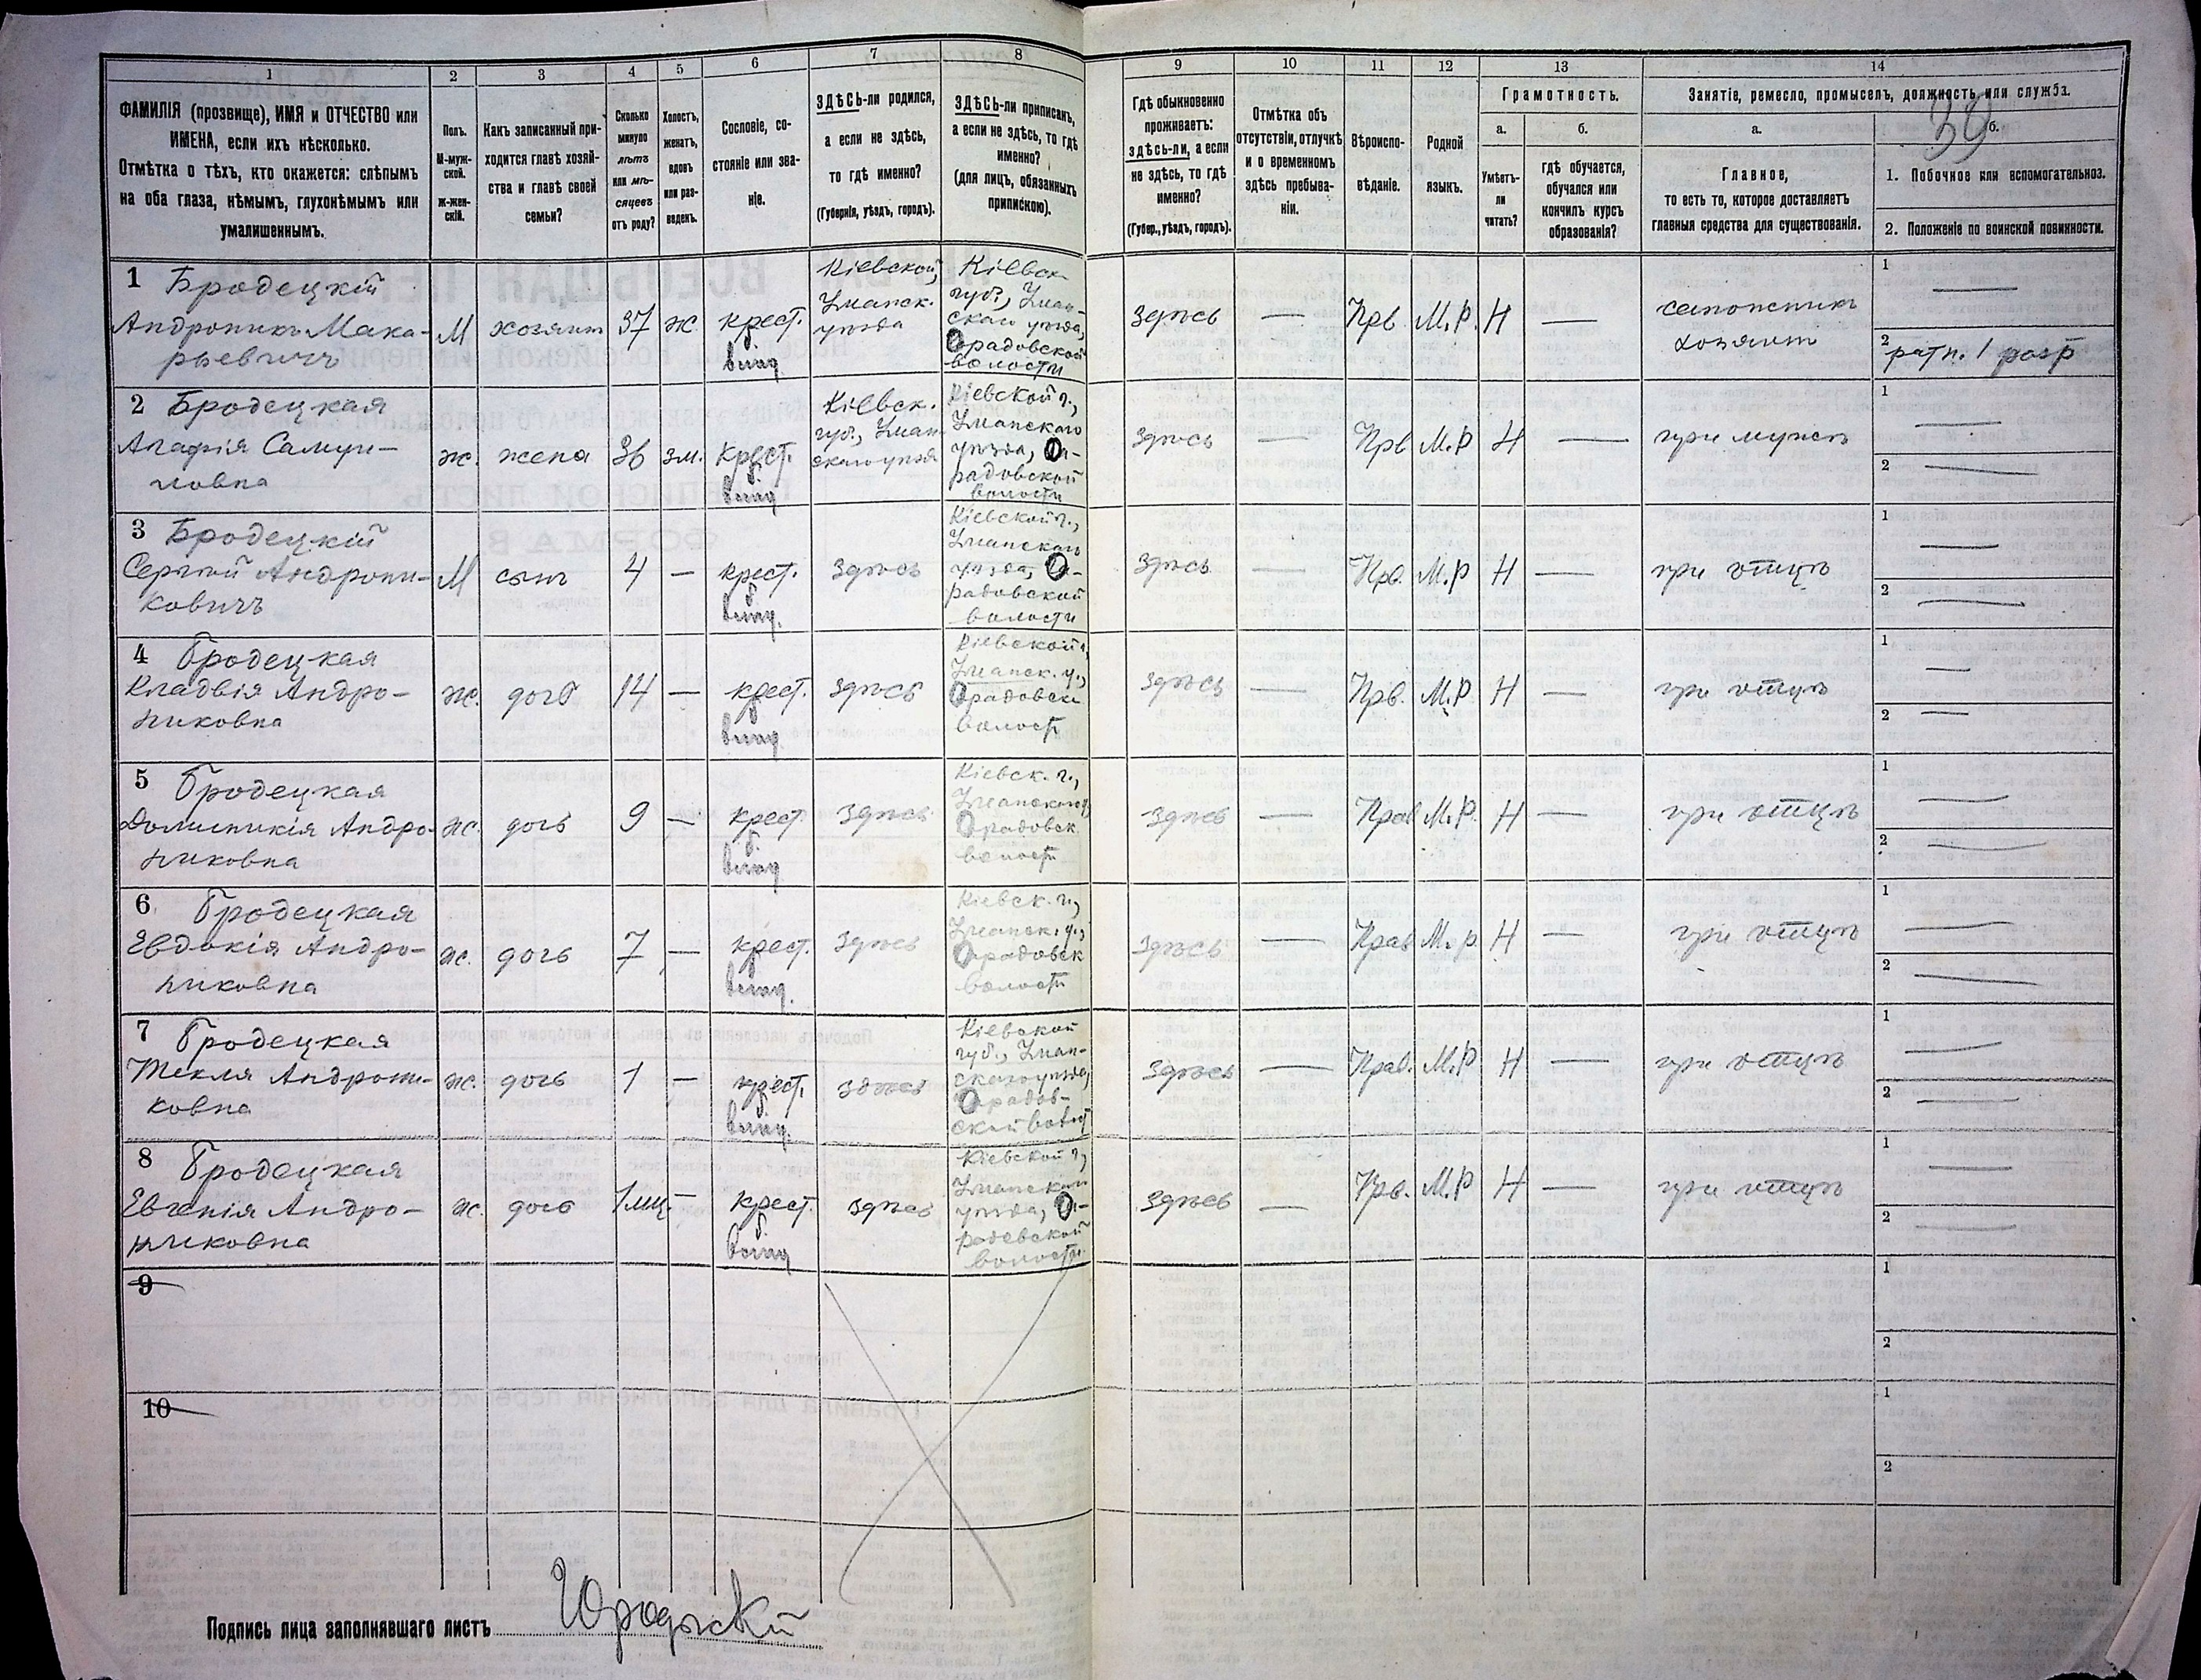 1 2 3 4 5 6 7 8 9 10 11 12 13 14
ФАМИЛІЯ (прозвище), ИМЯ и ОТЧЕСТВО или
ИМЕНА, если ихъ нѣсколько.
Отмѣтка о тѣхъ, кто окажется: слѣпымъ
на оба глаза, нѣмымъ, глухонѣмымъ или
умалишеннымъ.
Полъ.
М-муж-
ской.
Ж-жен-
скій.
Какъ записанный при-
ходится главѣ хозяй-
ства и главѣ своей
семьи?
Сколько
минуло
лѣтъ
или мѣ-
сяцевъ
отъ роду?
Холостъ,
женатъ,
вдовъ
или раз-
веденъ.
Сословіе, со-
стояніе или зва-
ніе.
ЗДѢСЬ-ли родился,
а если не здѣсь,
то гдѣ именно?
(Губернія, уѣздъ, городъ).
ЗДѢСЬ-ли приписанъ,
а если не здѣсь, то гдѣ
именно?
(для лицъ, обязанныхъ
припискою).
Гдѣ обыкновенно
проживаетъ:
здѣсь-ли, а если
не здѣсь, то гдѣ
именно?
(Губер., уѣздъ, городъ).
Отмѣтка объ
отсутствіи, отлучкѣ
и о временномъ
здѣсь пребыва-
ніи.
Вѣроиспо-
вѣданіе.
Родной
языкъ.
Грамотность.
а.
Умѣетъ-
ли
читать?
б.
гдѣ обучается,
обучался или
кончилъ курсъ
образованія?
Занятіе, ремесло, промыселъ, должность или служба.
39
а.
Главное,
то есть то, которое доставляетъ
главныя средства для существованія.
б.
1. Побочное или вспомогательное.
2. Положеніе по воинской повинности.
1 Бродецкій
Андроникъ Мака-
рьевичъ
М
хозяинъ
37
ж.
крест.
Кіевской,
Уманск.
уѣзда
Кіевск
губ., Уман-
скаго уѣзда,
радовской
волости
здѣсь
—
Прв.
М.Р.
Н
—
хозяинъ
1 —
2 ратн. 1 разр
2 Бродецкая
Агафія Самуи-
ловна
ж.
жена
36
зм.
Крест.
Кіевск.
губ., Уман-
скаго уѣзда
Кіевской г.,
Уманскаго
уѣзда,
радовской
волости
здѣсь
—
Прв
М.Р
Н
—
при мужѣ
1 —
2 —
3 Бродецкій
Сергѣй Андрони-
ковичъ
М
сынъ
4
—
крест.
здѣсь
Кіевской г.,
Уманскаго
уѣзда,
радовской
волости
здѣсь
—
Прв.
М.Р
Н
—
при отцѣ
1 —
2 —
4 Бродецкая
Клавдія Андро-
никовна
ж.
дочь
14
—
крест.
здѣсь
Кіевской г.,
Уманск. у.,
волости
здѣсь
—
Прв.
М.Р
Н
—
при отцѣ
1 —
2 —
5 Бродецкая
Домникія Андро-
никовна
ж.
дочь
9
—
крест.
здѣсь
Кіевск. г.,
волости
здѣсь
—
Прав
М.Р.
Н
—
при отцѣ
1 —
2 —
6 Бродецкая
Евдокія Андро-
никовна
ж.
дочь
7
—
крест.
здѣсь
Кіевск. г.,
Уманск. у.,
волости
здѣсь
—
Прав
М.р.
Н
—
при отцѣ
1 —
2 —
7 Бродецкая
Текля Андрони-
ковна
ж.
дочь
1
—
крест.
здѣсь
Кіевской
губ., Уман-
скаго уѣзда,
здѣсь
—
Прав.
М.Р
Н
—
при отцѣ
1 —
2 —
8 Бродецкая
Евгенія Андро-
никовна
ж.
дочь
1 мц.
—
крест.
здѣсь
Кіевской г.,
Уманскаго
уѣзда,
радовской
волости
здѣсь
—
Прв.
М.Р
Н
—
при отцѣ
1 —
2 —
9
1
2
10
1
2
Подпись лица заполнявшаго листъ